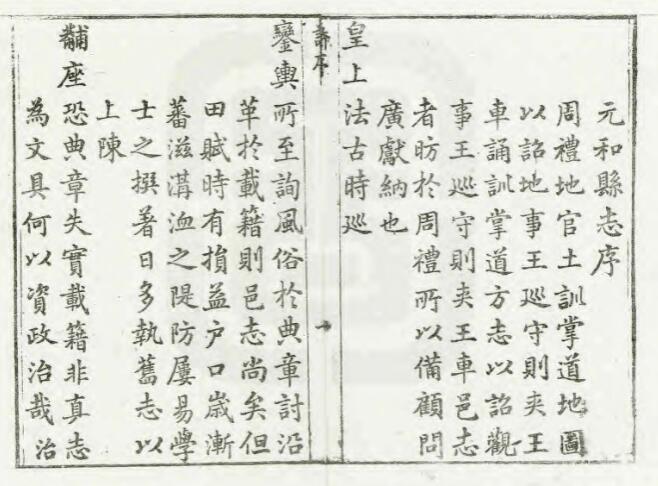 元和縣志序
周禮地官土訓掌道地圖
以詔地事王巡守則夾王
車誦訓掌道方志以詔觀
事王巡守則夾王車邑志
者昉於周禮所以備顧問
廣獻納也
皇上法古時巡
序
鑾輿所至詢風俗於典章討沿
革於載籍則邑志尚矣但
田賦時有損益户口歲漸
蕃滋溝洫之隄防屢易學
士之撰著日多執舊志以
上陳
黼座恐典章失實載籍非真志
為文具何以資政治哉治